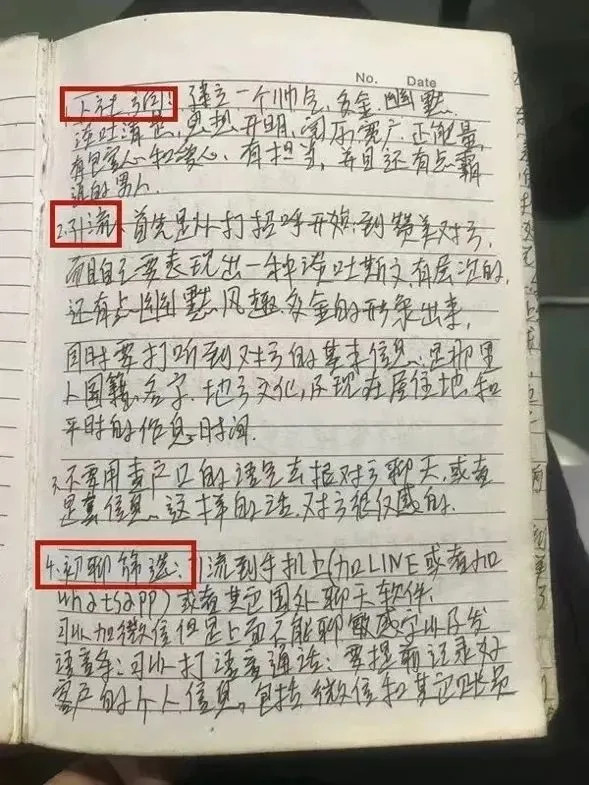 No. Date
1、人社圈：建立一个帅气，多金，幽默，
谈吐清楚，思想开明，阅历宽广，正能量，
有包容心和爱心、有担当，并且还有点霸
道的男人
2、引流、首先是从打招呼开始：到赞美对方，
而且自己要表现出一种谈吐斯文，有层次的，
还有点幽默，风趣，多金的形象出来，
同时要打听到对方的基本信息、是哪里
人国籍、名字、地方文化，及现在居住地，和
平时的作息时间.
3、不要用查户口的语气去跟对方聊天，或者
是套信息、这样的话，对方很反感的.
4、初聊筛选：引流到手机上（加LINE或者加
whatsapp）或者其它国外聊天软件.
可以加微信但是上面不能聊敏感字以及发
语音等：可以打语音通话：要提前记录好
客户的个人信息，包括微信和其它账号